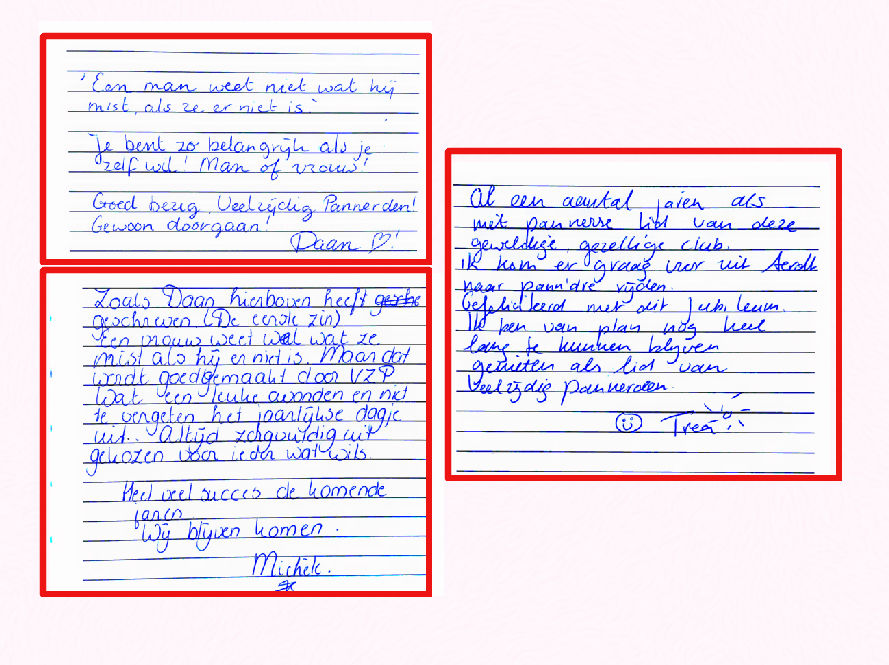 'Een man weet niet wat hij
mist, als ze er niet is.'
Je bent zo belangrijk als je
zelf wil! Man of vrouw!
Goed bezig, Veelzijdig Pannerden!
Gewoon doorgaan!
Daan ♡!
Zoals Daan hierboven heeft
geschreven (De eerste zin)
Een vrouw weet wel wat ze
mist als hij er niet is. Maar dat
wordt goedgemaakt door VZP
Wat een leuke avonden en niet
te vergeten het jaarlijkse dagje
uit.. Altijd zorgvuldig uit
gekozen voor ieder wat wils.
Heel veel succes de komende
jaren.
Wij blijven komen.
Michèle.
Al een aantal jaren als
niet pannerse lid van deze
geweldige, gezellige club.
Ik kom er graag voor uit
naar pann'dre rijden.
Gefeliciteerd met dit jubileum.
Ik ben van plan nog heel
lang te kunnen blijven
genieten als lid van
Veelzijdig Pannerden.
☺ Trea